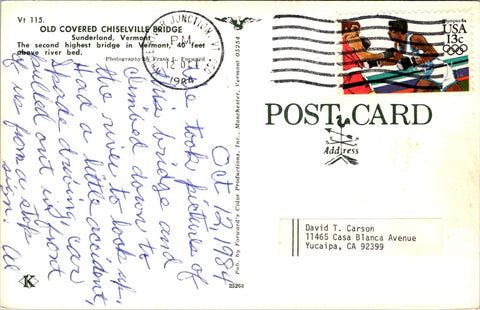 Vt 115.
OLD COVERED CHISELVILLE BRIDGE
Sunderland, Vermont
The second highest bridge in Vermont, 40 feet
above river bed.
Photography by Frank L. Forward
JUNCTION, VT
P.M.
12 OCT
1984
Olympics 84
USA
13c
POST CARD
Address
Oct 12, 1984
We took pictures of
this bridge and
climbed down to
the river to look up.
Had a little accident,
Shade driving, car
pulled out in front
of us from a stop
sign. Al
Pub. by Forward's Color Productions, Inc., Manchester, Vermont 05254
25268
K
David T. Carson
11465 Casa Blanca Avenue
Yucaipa, CA 92399